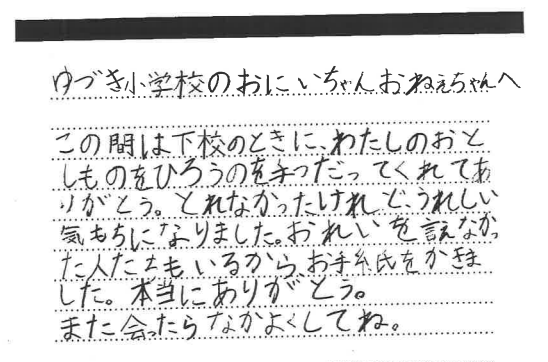 ゆづき小学校のおにいちゃんおねえちゃんへ
この間は下校のときに、わたしのおと
しものをひろうのを手つだってくれてあ
りがとう。とれなかったけれど、うれしい
気もちになりました。おれいを言えなかっ
た人たちもいるから、お手紙をかきま
した。本当にありがとう。
また会ったらなかよくしてね。